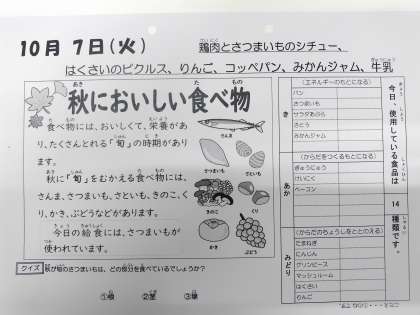 10月 7日(火)
鶏肉とさつまいものシチュー、
はくさいのピクルス、りんご、コッペパン、みかんジャム、牛乳
秋においしい食べ物
食べ物には、おいしくて、栄養があ
り、たくさんとれる「旬」の時期があり
ます。
秋に「旬」をむかえる食べ物には、
さんま、さつまいも、さといも、きのこ、く
り、かき、ぶどうなどがあります。
今日の給食には、さつまいもが
使われています。
さんま
さつまいも
さといも
きのこ
くり
かき
ぶどう
クイズ
秋が旬のさつまいもは、どの部分を食べているでしょうか?
①根 ②茎 ③葉
今日、使用している食品は
14
種類です。
き
(エネルギーのもとになる)
パン
さつまいも
サラダあぶら
さとう
みかんジャム
あか
(からだをつくるもとになる)
ぎゅうにゅう
けいにく
ベーコン
みどり
(からだのちょうしをととのえる)
たまねぎ
にんじん
グリンピース
マッシュルーム
はくさい
りんご